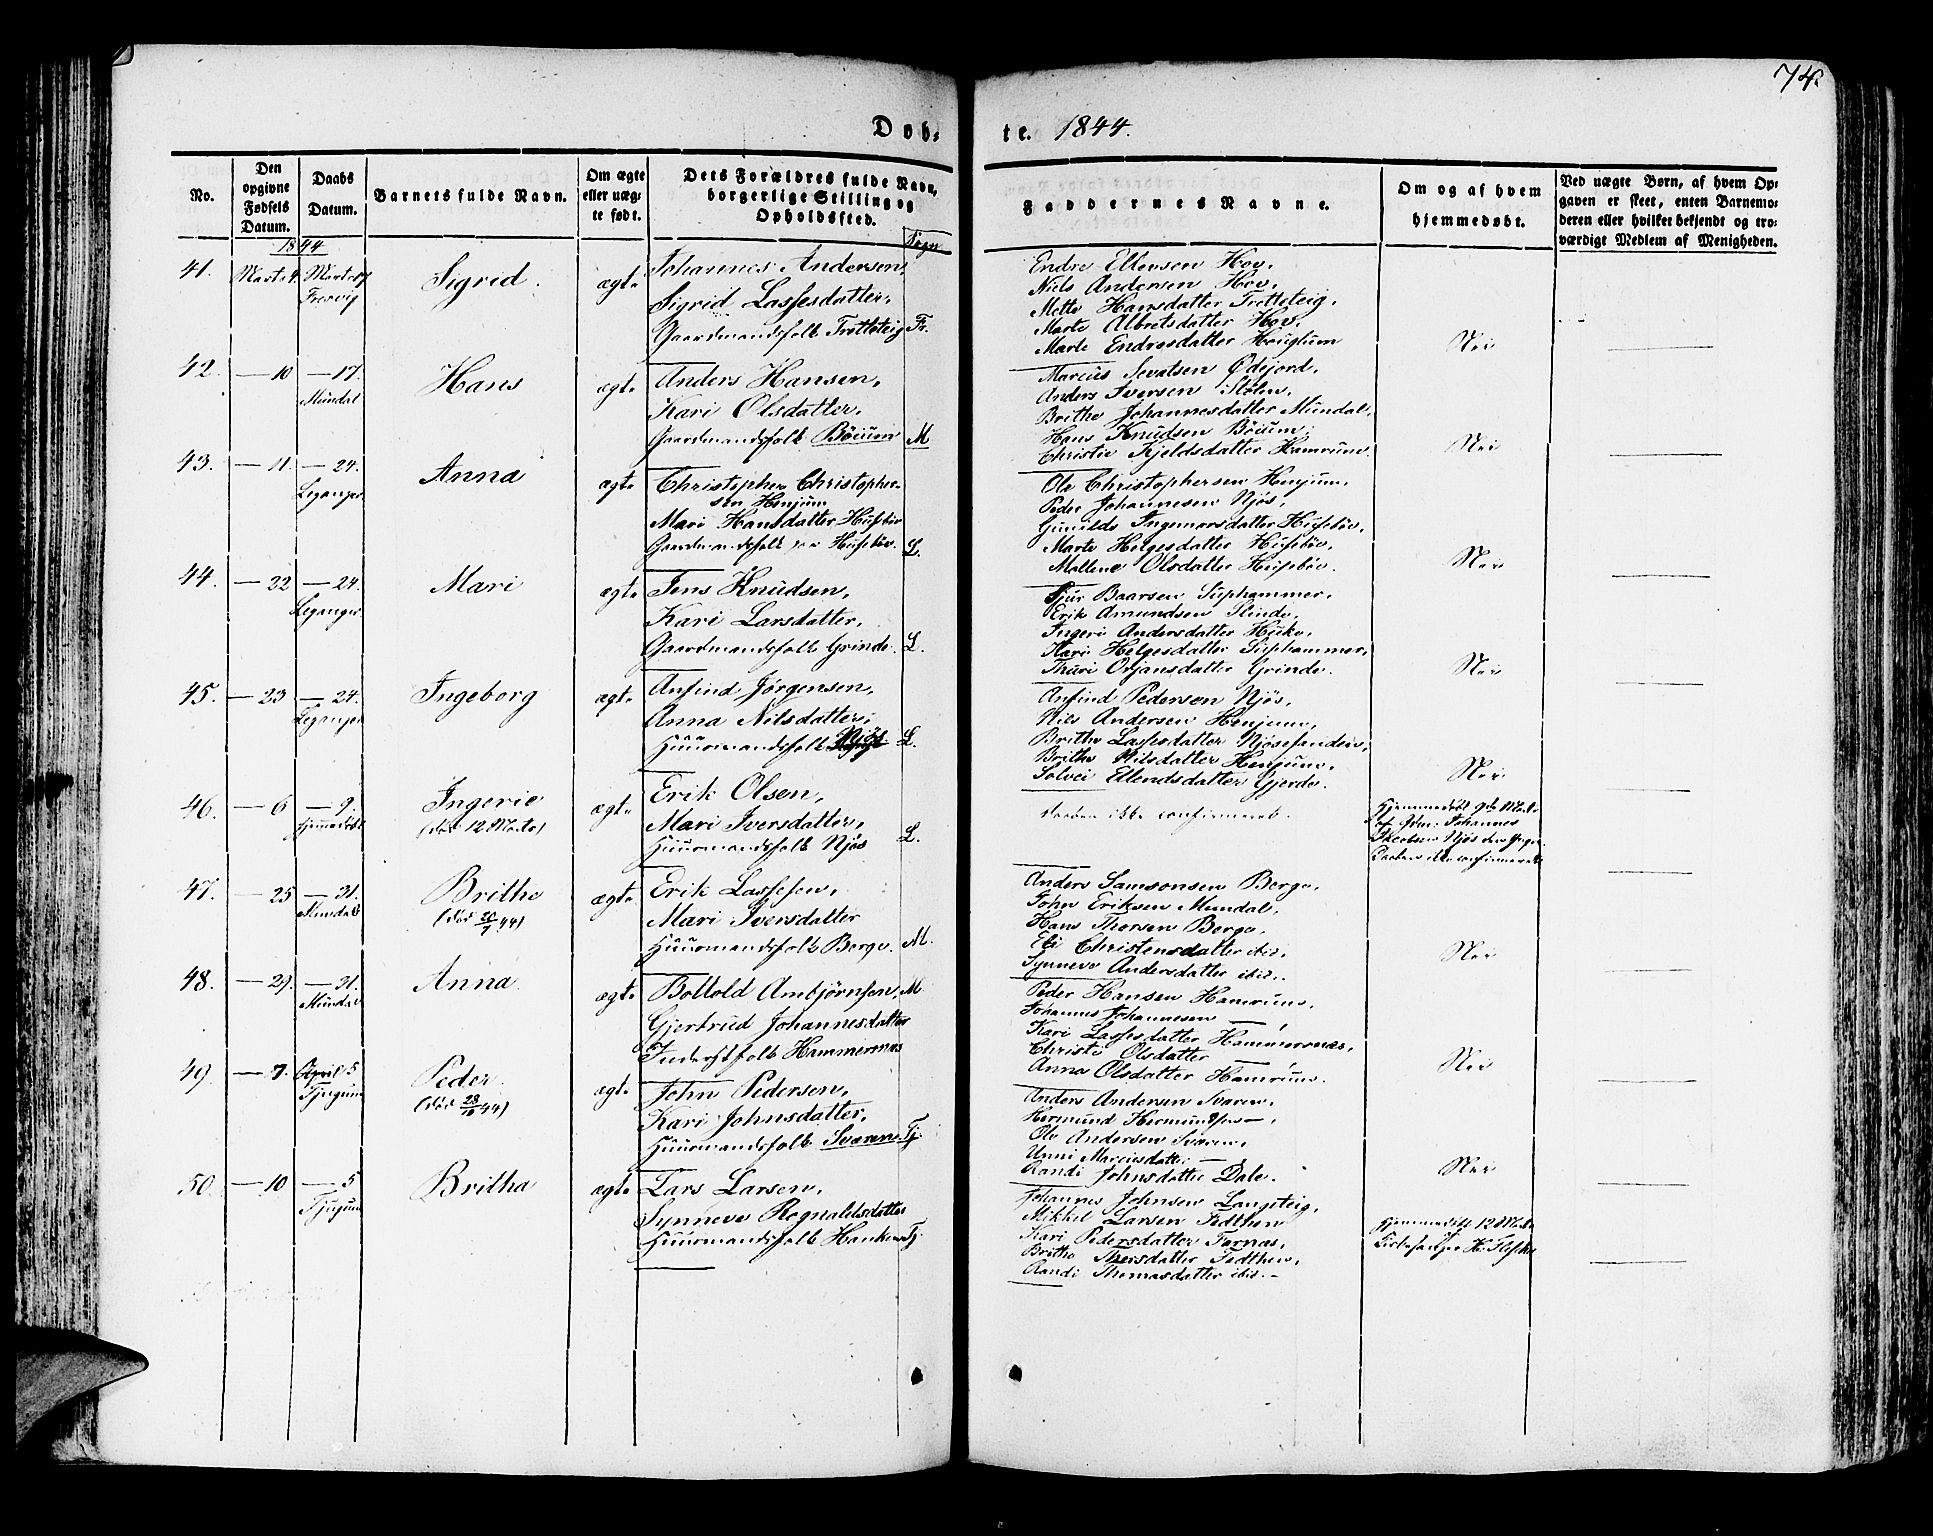 74.
Døb-
te. 1844.
No.
Den opgivne Fødsels Datum.
Daabs Datum.
Barnets fulde Navn.
Om ægte eller uæg-te født.
Dets Forældres fulde Navn, borgerlige Stilling og Opholdssted.
Sogn
Faddernes Navne.
Om og af hvem hjemmedøbt.
Ved uægte Børn, af hvem Op-gaven er skeet, enten Barnemo-deren eller hvilket bekjendt og tro-værdigt Medlem af Menigheden.
1844
41. Marts 4.
Fresvig
Sigrid.
ægte
Johannes Andersen,
Sigrid Lassesdatter,
Gaardmandsfolk Trotteteig Fr.
Endre Ellensen Hov,
Niels Andersen Hov,
Mette Hansdatter Trotteteig,
Marte Albretsdatter Hov,
Marte Endresdatter Houglum
Nei
42. — 10 — 17.
Mundal
Hans
ægte
Anders Hansen,
Kari Olsdatter,
Gaardmandsfolk Böium M
Marcus Sevatsen Ødejord,
Anders Iversen Stølen,
Brithe Johannesdatter Mundal,
Hans Knudsen Böium,
Christie Kjeldsdatter Hamrum
Nei
43. — 11. — 24.
Leganger
Anna
ægte
Christopher Christopher-
sen Henjum
Mari Hansdatter Husebøe
Gaardmandsfolk paa Husebøe. L.
Ole Christophersen Henjum,
Peder Johannesen Njøs,
Gunilde Ingemarsdatter Husebøe,
Marte Helgesdatter Husebøe,
Mallene Olsdatter Husebøe.
Nei
44. — 22 — 24.
Leganger
Mari
ægte
Jens Knudsen,
Kari Larsdatter,
Gaardmandsfolk Grinde. L.
Sjur Baarsen Suphammer,
Erik Amundsen Slinde,
Ingeri Andersdatter Huke,
Kari Helgesdatter Suphammer,
Thuri Orjansdatter Grinde.
Nei
45. — 23 — 24.
Leganger
Ingeborg
ægte
Anfind Jørgensen,
Anna Nilsdatter,
Huusmandsfolk Njøs. L.
Anfind Pedersen Njøs,
Nils Andersen Henjum,
Brithe Lassesdatter Njøsesanden,
Brithe Nilsdatter Henjum,
Solvei Ellendsdatter Gjerde.
Nei
46. — 6 — 9.
hjemmedøbt
Ingerie
(død 12 Marts)
ægte
Erik Olsen,
Mari Iversdatter,
Huusmandsfolk Njøs L.
Daaben ikke confirmeret.
Hjemmedøbt 9de Marts
af Gdm. Johannes
Jacobsen Njøs
Daaben ikke confirmeret
47. — 25 — 31.
Mundal
Brithe
(død 20/7 44)
ægte
Erik Lassesen,
Mari Iversdatter
Huusmandsfolk Berge. M.
Anders Samsonsen Berge,
John Eriksen Mundal,
Hans Thorsen Berge,
Eli Christensdatter ibid.,
Synneve Andersdatter ibid.
Nei
48. — 29. — 31.
Mundal
Anna
ægte
Bottold Ambjørnsen, M
Gjertrud Johannesdatter
Inderstfolk Hammernæs
Peder Hansen Hamrum,
Johannes Johannesen —
Kari Lassesdatter Hammersnæs,
Christi Olsdatter —
Anna Olsdatter Hamrum.
Nei
49. — 7. April 5
Tjugum
Peder
(død 28/10 44)
ægte
John Pedersen,
Kari Johnsdatter,
Huusmandsfolk Sværen Tj.
Anders Andersen Sværen,
Hermund Hermundsen —,
Ole Andersen Sværen,
Unni Marcusdatter —
Randi Johnsdatter Dale.
Nei
50. — 10 — 5
Tjugum
Britha
ægte
Lars Larsen,
Synneve Rognaldsdatter
Huusmandsfolk Tj
Johannes Johnsen Langeteig,
Mikkel Larsen Fedthen
Kari Pedersdatter Farnæs,
Brithe Thersdatter Fedthen,
Randi Thomasdatter ibid.
Hjemmedøbt 12 Marts